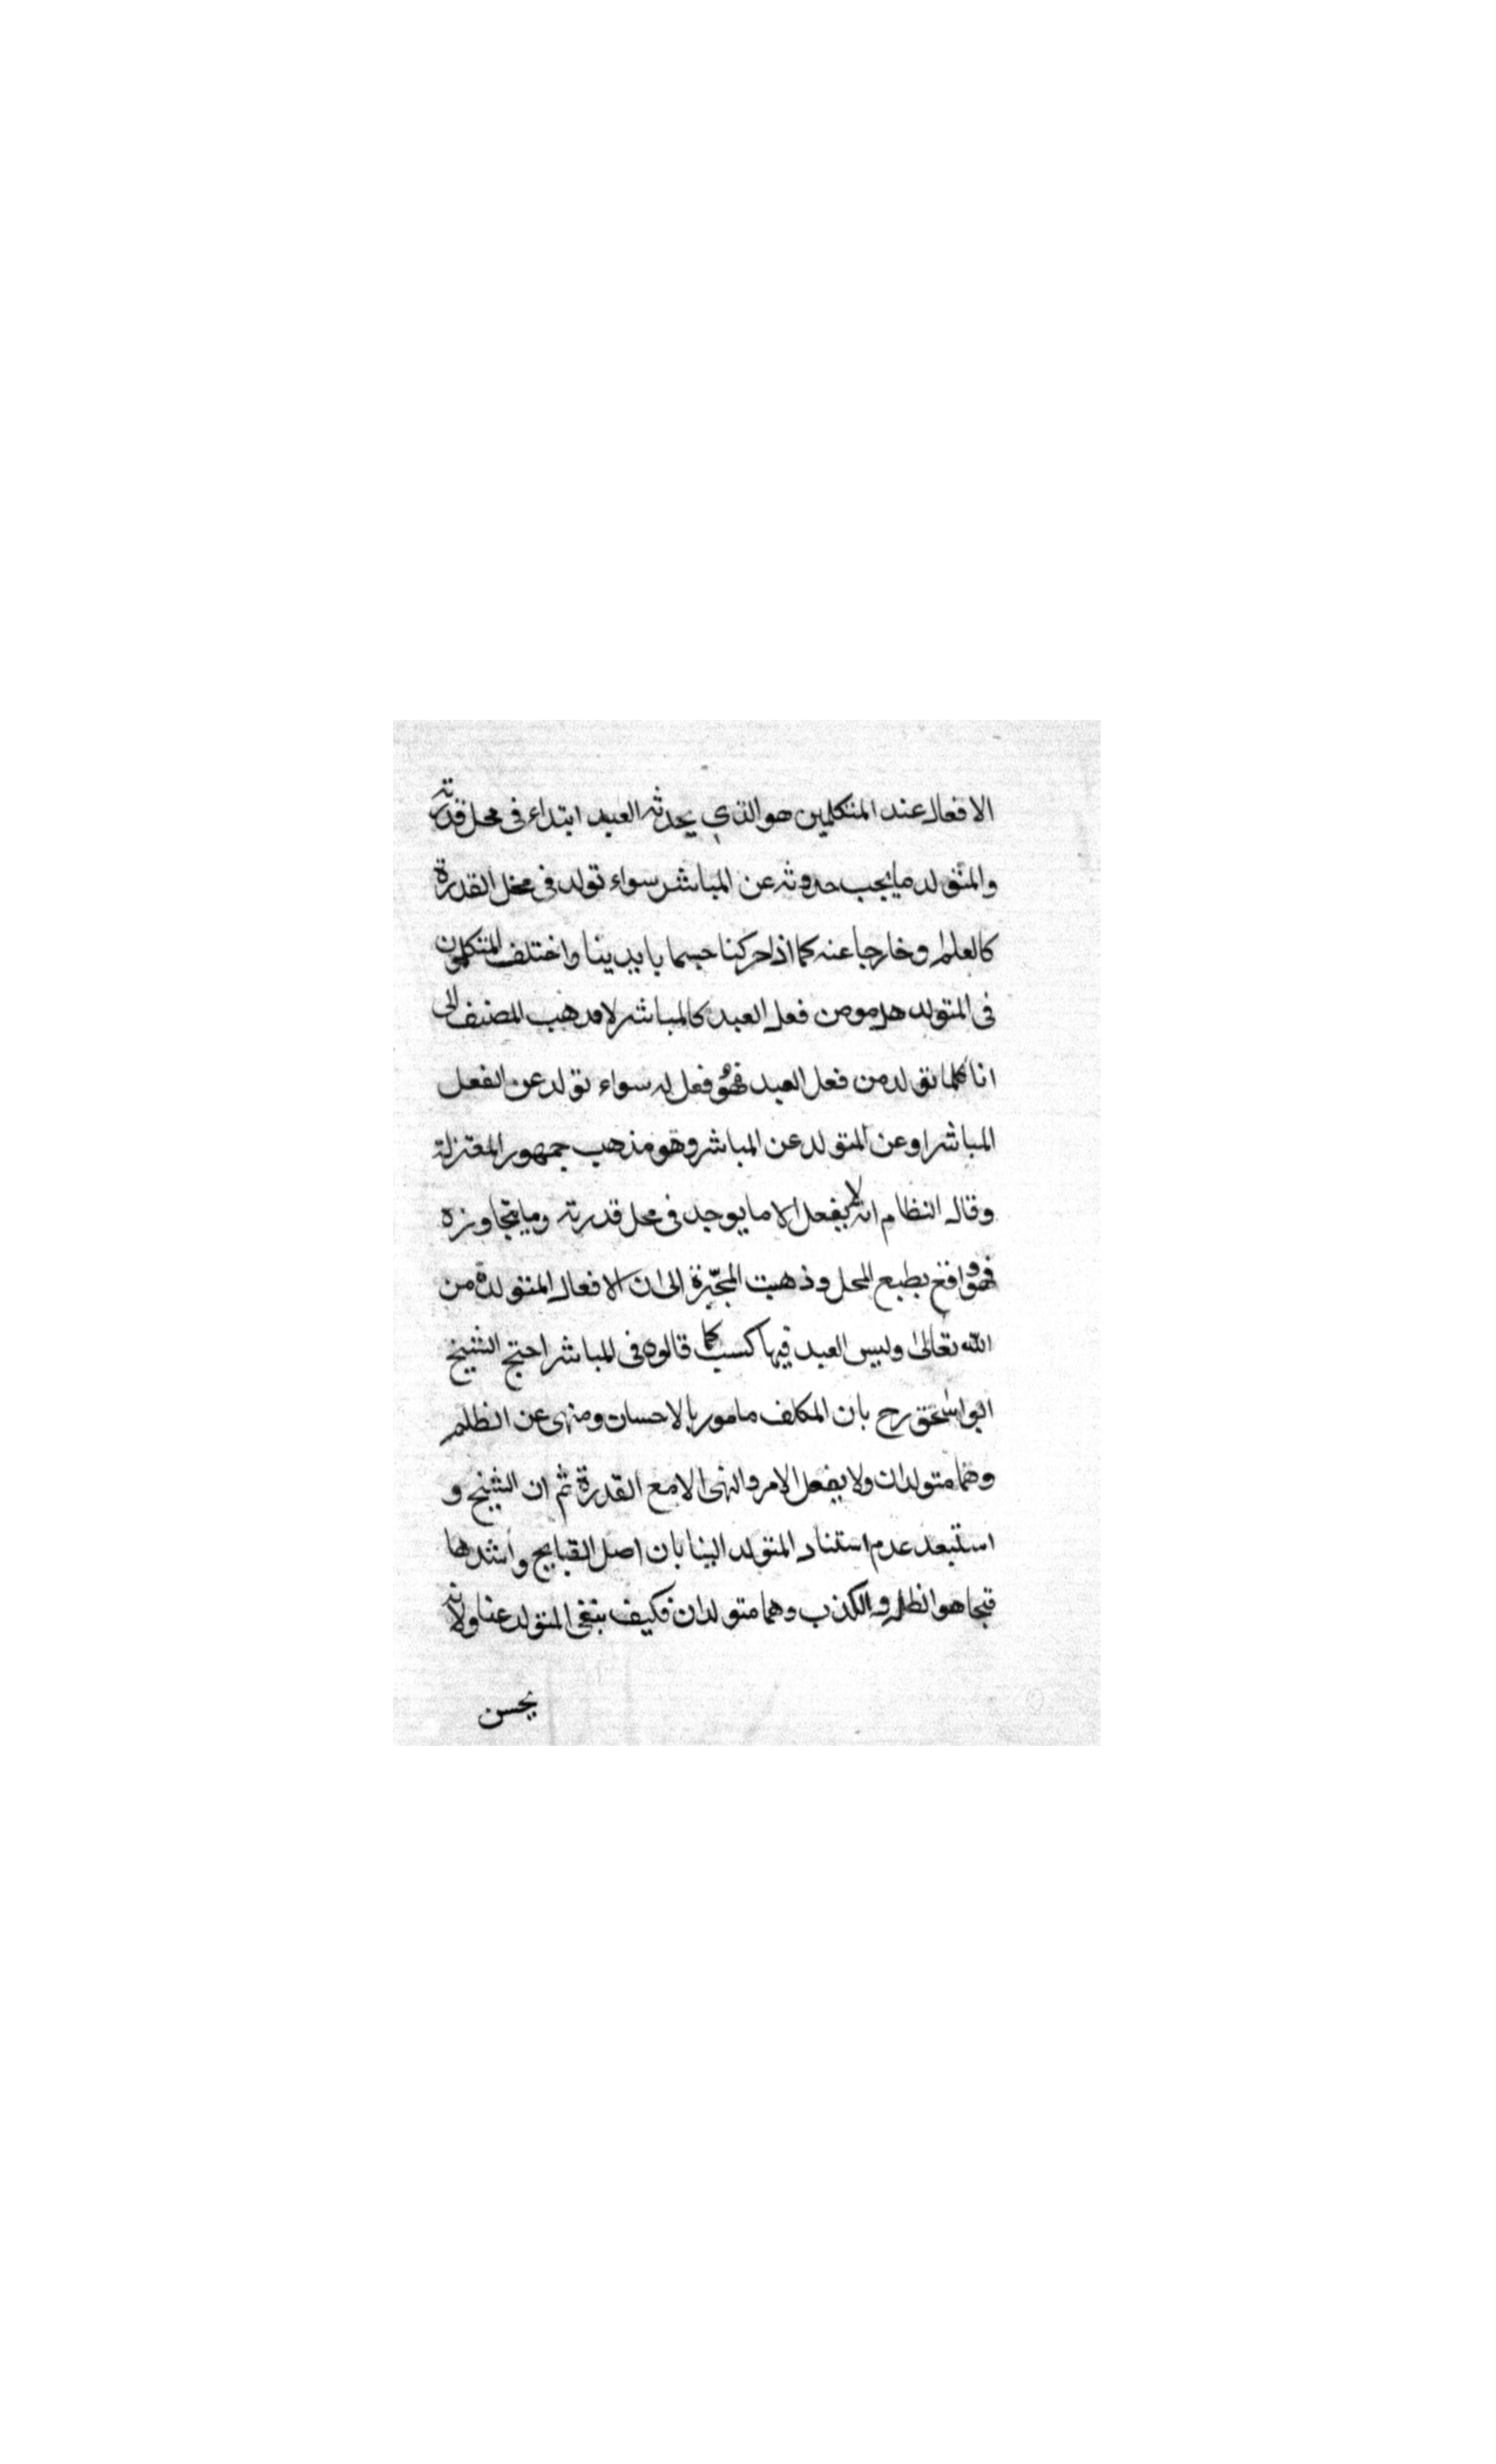 الافعال عند المتكلمين هو الذي يحدثه العبد ابتداء في محل قدرته
والمتولد ما يجب حدوثه عن المباشر سواء تولد في محل القدرة
كالعلم او خارجا عنه كما اذا حركنا جسما بايدينا واختلف المتكلمون
في المتولد هل هو من فعل العبد كالمباشر لا فذهب المصنف الى
انا كلما تولد من فعل العبد فهو فعل له سواء تولد عن الفعل
المباشر او عن المتولد عن المباشر وهو مذهب جمهور المعتزلة
وقال النظام انه لا يفعل الا ما يوجد في محل قدرته وما يتجاوزه
فهو واقع بطبع المحل وذهبت المجبرة الى ان الافعال المتولدة من
الله تعالى وليس العبد فيها كسب كما قالوه في المباشر احتج الشيخ
ابو اسحق رح بان المكلف مامور بالاحسان ومنهى عن الظلم
وهما متولدان ولا يفعل الامر والنهى الا مع القدرة ثم ان الشيخ و
استبعد عدم استناد المتولد الينا بان اصل القبايح واشدها
قبحا هو الظلم والكذب وهما متولدان فكيف ينفى المتولد عنا ولانه
يحسن